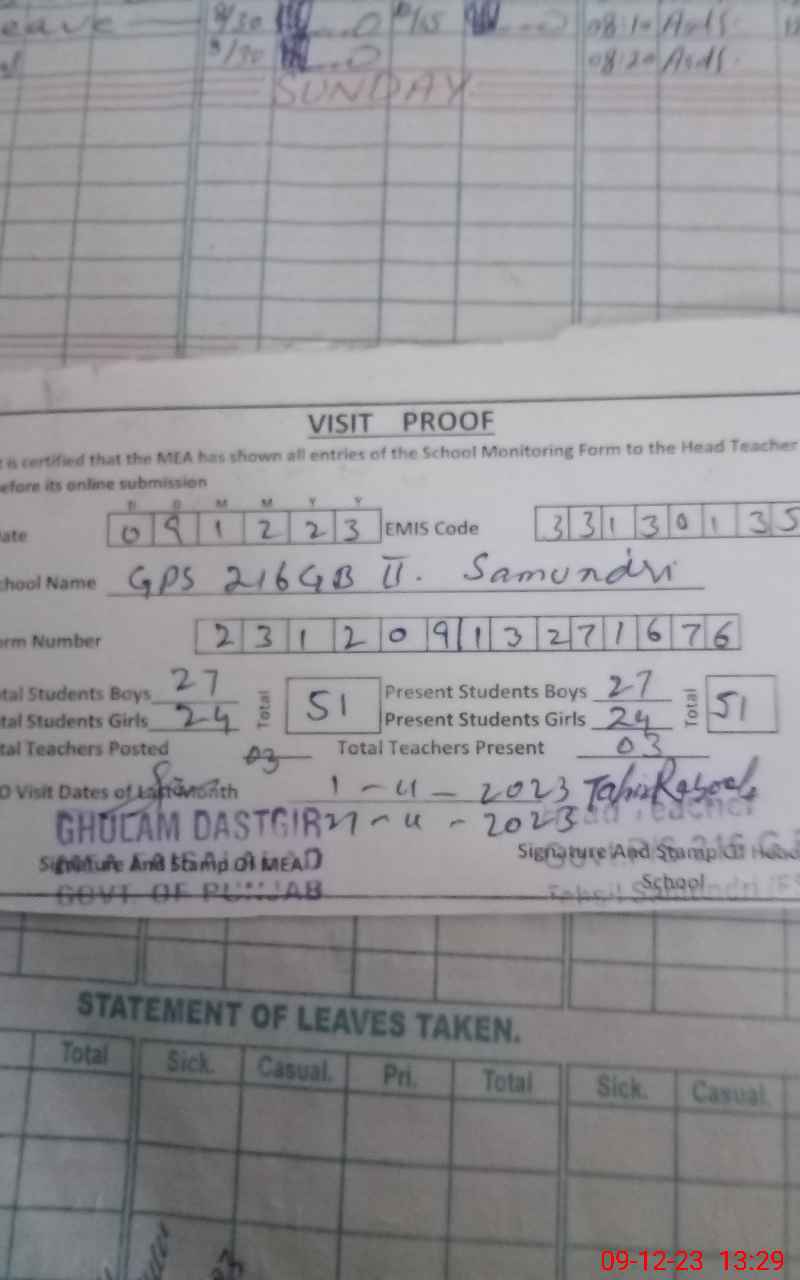 eave 8/30 0 08:10
8/30 0 08:20
SUNDAY
VISIT PROOF
is certified that the MEA has shown all entries of the School Monitoring Form to the Head Teacher
efore its online submission
D D M M Y Y
ate 0 9 1 2 2 3 EMIS Code 3 3 1 3 0 1 3 5
chool Name GPS 216 GB II. Samundri
orm Number 2 3 1 2 0 9 1 3 2 7 1 6 7 6
tal Students Boys 27 Total 51 Present Students Boys 27 Total 51
tal Students Girls 24 Present Students Girls 24
tal Teachers Posted 03 Total Teachers Present 03
O Visit Dates of Last Month 1-11-2023 Tahir Rasool
GHULAM DASTGIR 27-11-2023 ad Teacher
Signature And Stamp Of MEA Signature And Stamp Of Head
School
GOVT OF PUNJAB Tehsil Samundri
STATEMENT OF LEAVES TAKEN.
Total Sick. Casual. Pri. Total Sick. Casual.
09-12-23 13:29